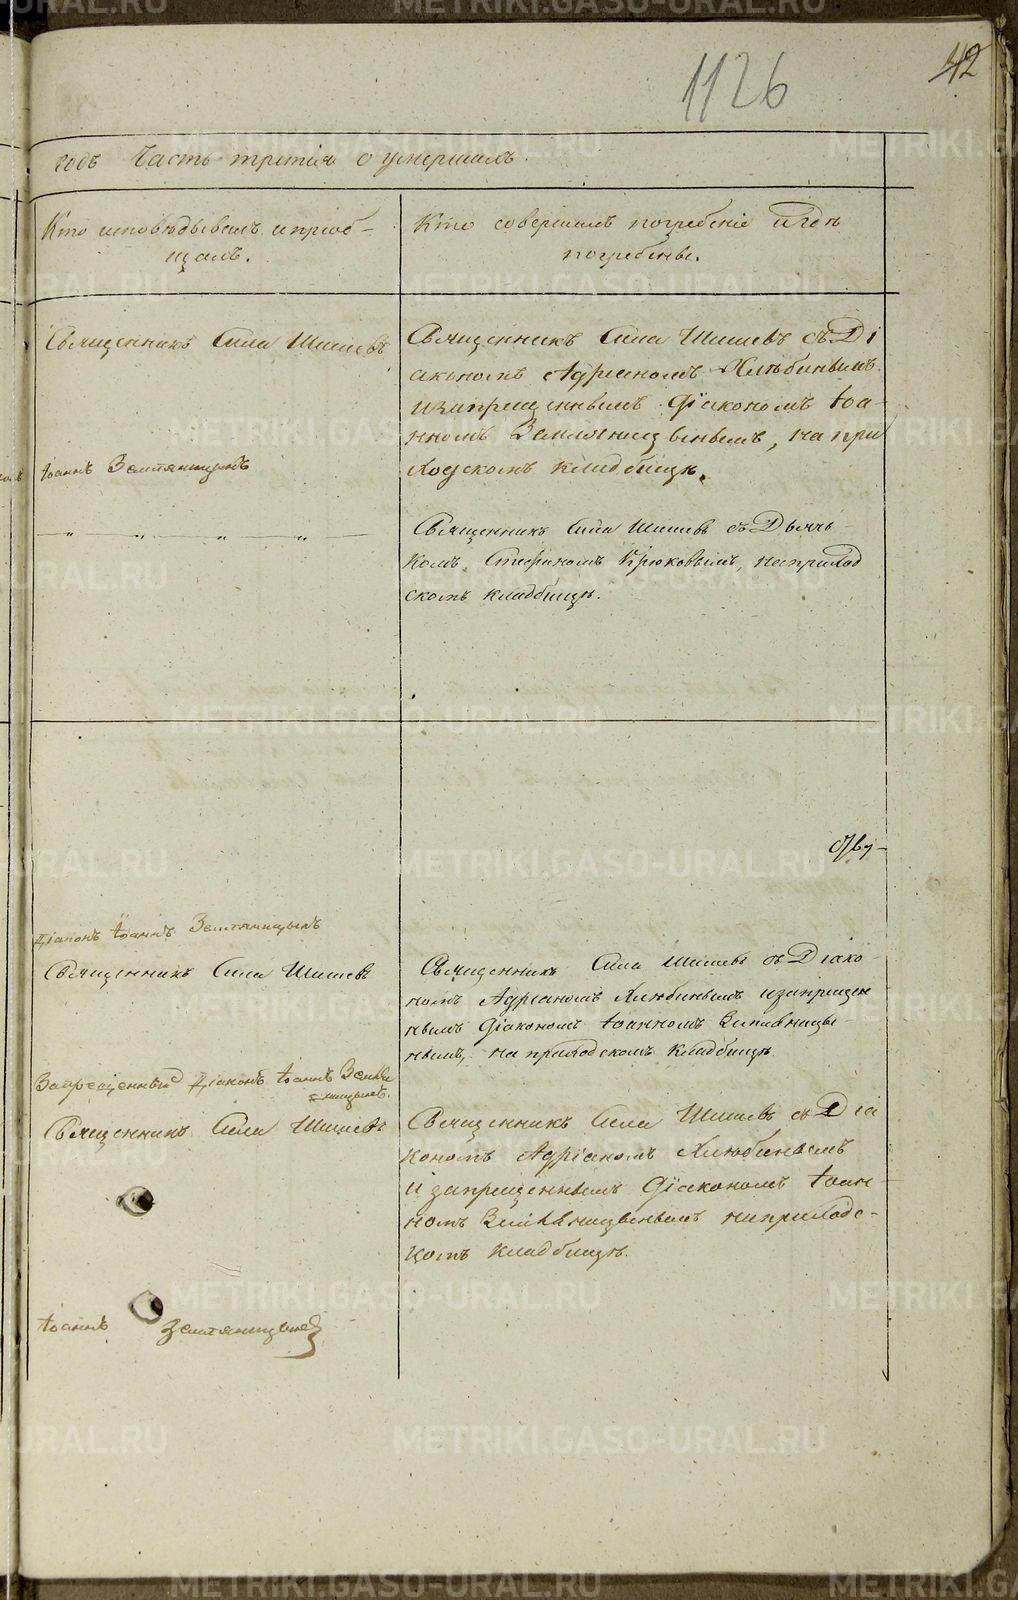 1126
42
годъ Часть третія о умершихъ.
Кто исповѣдывалъ и пріоб-
щалъ.
Кто совершалъ погребеніе и гдѣ
погребены.
Священникъ Сила Шишевъ
Іоаннъ Земляницынъ
Священникъ Сила Шишевъ съ Ді
акономъ Адріаномъ Хлюбинымъ
и запрещеннымъ Діакономъ Іоа-
нномъ Земляницынымъ, на при
ходскомъ кладбищѣ.
Священникъ Сила Шишевъ съ Дьяч
комъ Стефаномъ Крюковымъ, на приход
скомъ кладбищѣ.
Діаконъ Іоаннъ Земляницынъ
Священникъ Сила Шишевъ
Священникъ Сила Шишевъ съ Діако-
номъ Адріаномъ Хлюбинымъ и запрещен
нымъ Діакономъ Іоанномъ Земляницы-
нымъ, на приходскомъ кладбищѣ.
Запрещенный Діаконъ Іоаннъ Земля
ницынъ.
Священникъ Сила Шишевъ
Священникъ Сила Шишевъ съ Діа
кономъ Адріаномъ Хлюбинымъ
и запрещеннымъ Діакономъ Іоан-
номъ Земляницынымъ на приходс-
комъ кладбищѣ.
Іоаннъ Земляницынъ
METRIKI.GASO-URAL.RU